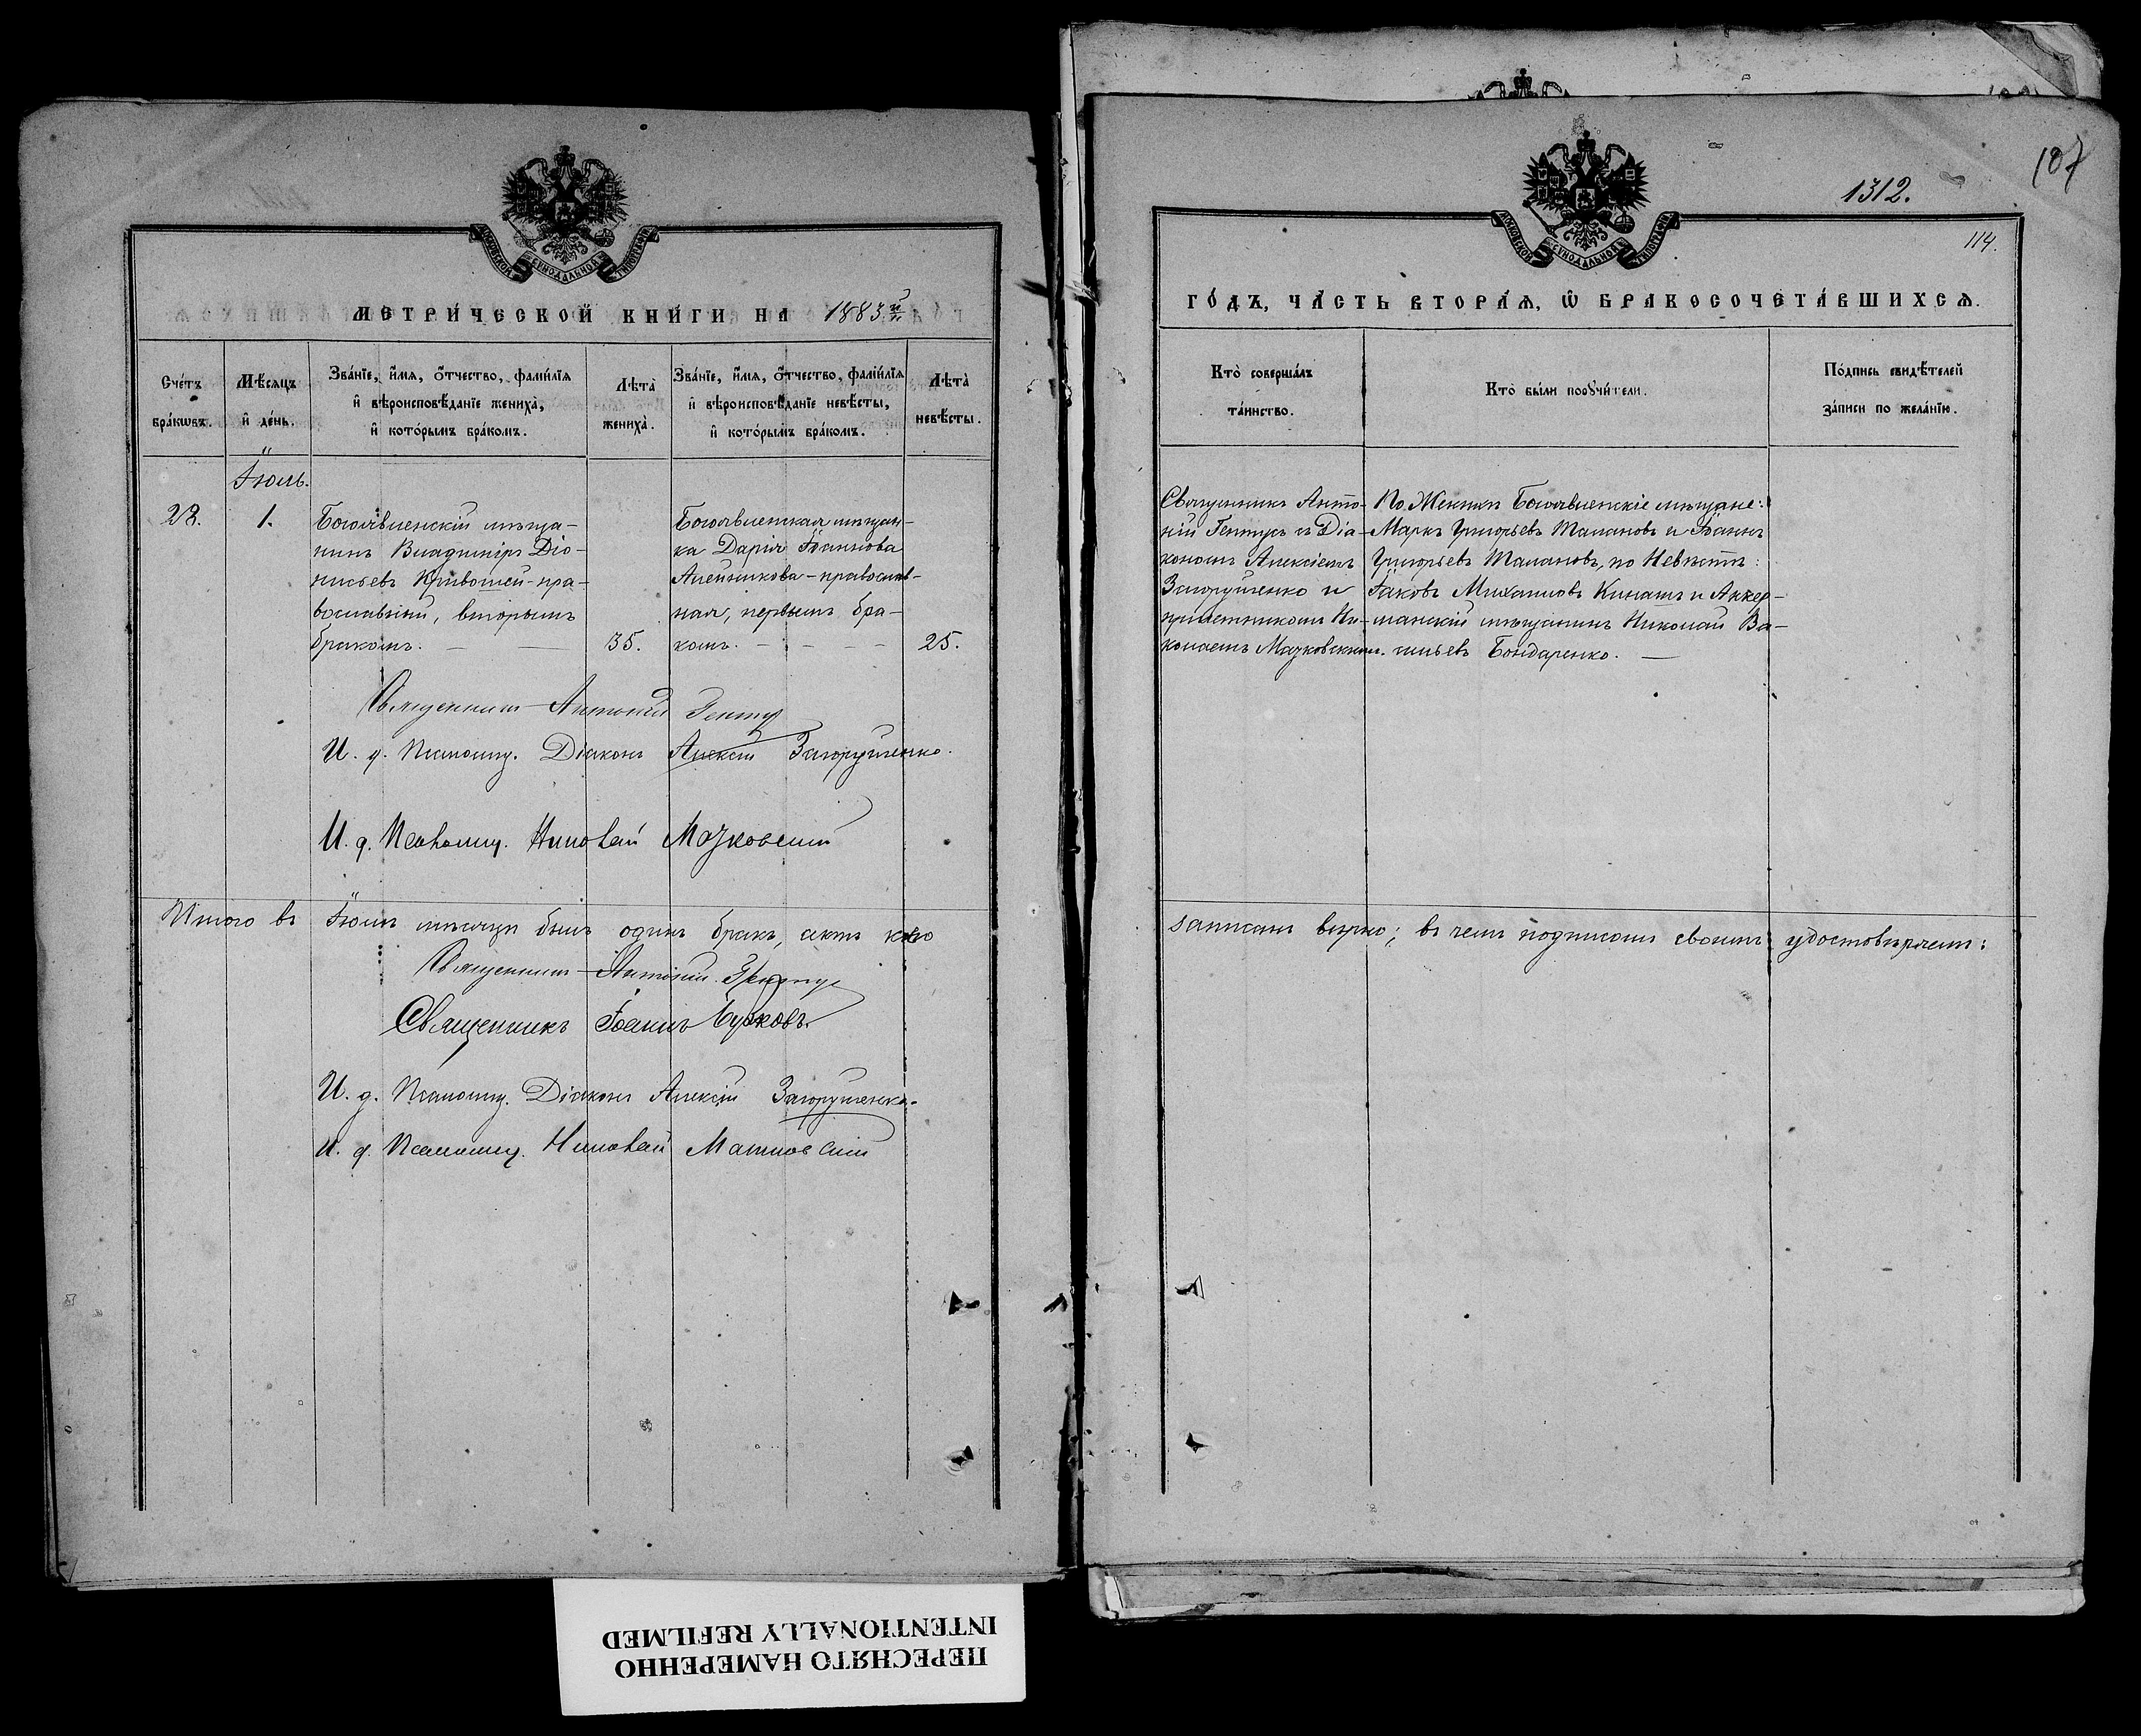 МОСКОВСКОЙ СѴНОДАЛЬНОЙ ТИПОГРАФІИ
МЕТРИ́ЧЕСКОЙ КНИ́ГИ НА 1883й
Сче́тъ бра́кѡвъ.
Мѣ́сяцъ и҆ де́нь.
Зва́нїе, и҆́мя, ѻ҆́тчество, фами́лїя
и҆ вѣроисповѣ́данїе жениха̀,
и҆ кото́рымъ бра́комъ.
Лѣта̀ жениха̀.
Зва́нїе, и҆́мя, ѻ҆́тчество, фами́лїя
и҆ вѣроисповѣ́данїе невѣ́сты,
и҆ кото́рымъ бра́комъ.
Лѣта̀ невѣ́сты.
Іюль.
28. 1.
Богоявленскій мѣща-
нинъ Владиміръ Діо-
нисьевъ Кривошей - пра-
вославный, вторымъ
бракомъ. — — 35.
Богоявленская мѣщан-
ка Дарія Іоаннова
Алейникова - православ-
ная, первымъ бра-
комъ. - - - - 25.
Священникъ Антоній
И. д. Псаломщ. Діаконъ Алексій Загорушенко.
И. д. Псаломщ. Николай Мачковскій
Итого въ Іюлѣ мѣсяцѣ былъ одинъ бракъ, актъ коего
Священникъ Антоній
Священникъ Іоаннъ
И. д. Псаломщ. Діаконъ Алексій Загорушенко.
И. д. Псаломщ. Николай
107
1312.
МОСКОВСКОЙ СѴНОДАЛЬНОЙ ТИПОГРАФІИ
114.
ГО́ДЪ, ЧА́СТЬ ВТОРА́Я, Ѡ҆ БРАКОСОЧЕТА́ВШИХСЯ.
Кто̀ соверша́лъ
та́инство.
Кто̀ бы́ли порꙋчи́тели.
По́дпись свидѣ́телей
за́писи по жела́нїю.
Священникъ Анто-
ній Гентусъ съ Діа-
кономъ Алексіемъ
Загорушенко и
причетникомъ Ни-
колаемъ Мачковскимъ.
По Женихѣ Богоявленскіе мѣщане:
Маркъ Григорьевъ Таланов и Іоаннъ
Григорьевъ Талановъ, по Невѣстѣ:
Іаковъ Михаиловъ Кинашъ и Аккер-
манскій мѣщанинъ Николай Ва-
сильевъ Бондаренко. —
записанъ вѣрно; въ чемъ подписомъ своимъ удостовѣряемъ:
ПЕРЕСНЯТО НАМЕРЕННО
INTENTIONALLY REFILMED